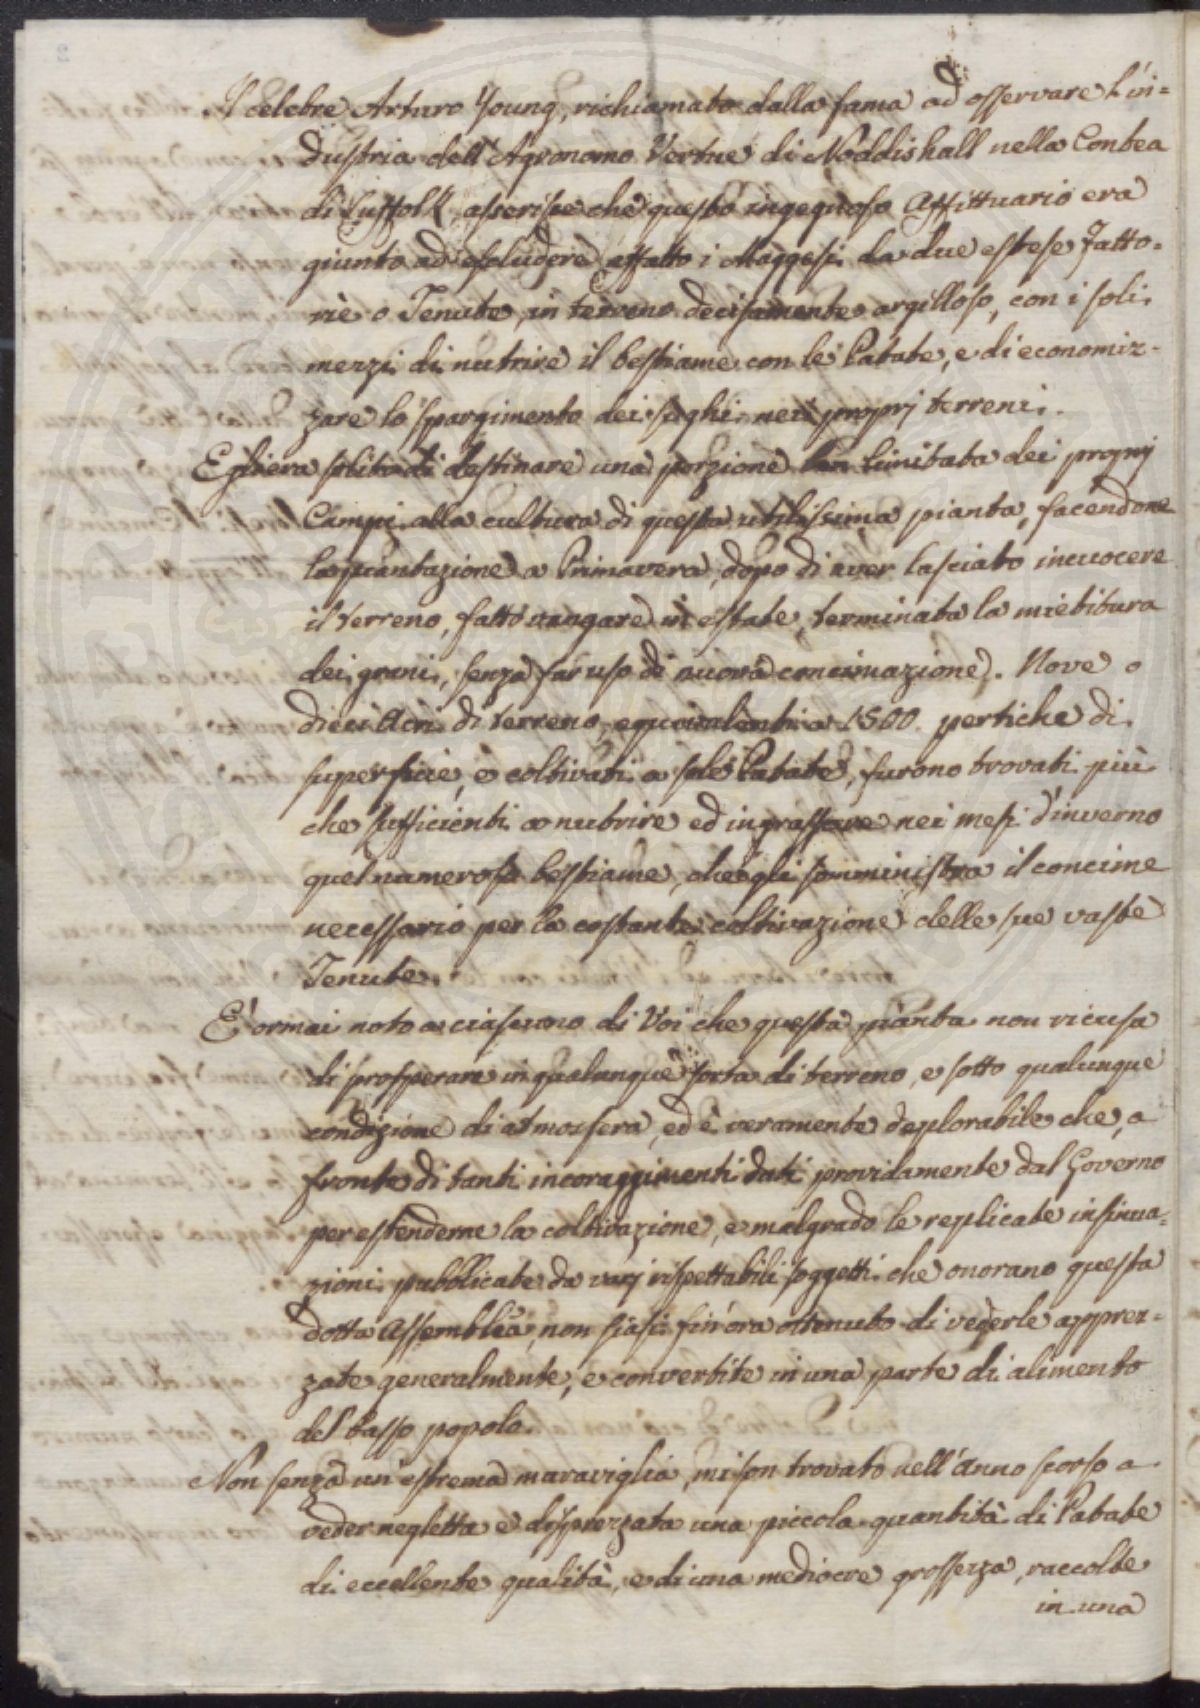 Il celebre Arturo Young, richiamato dalla fama ad osservare l'in=
dustria dell'Agronomo Vertue di Noddishall nella Contea
di Suffolk, asserisce che questo ingegnoso Affittuario era
giunto ad escludere affatto i Maggesi da due estese Fatto=
rie o Tenute, in terreno decisamente argilloso, con i soli
mezzi di nutrire il bestiame con le Patate, e di economiz=
zare lo spargimento dei sughi nei proprj terreni.
Egli era solito di destinare una porzione ben limitata dei proprj
Campi alla cultura di questa utilissima pianta, facendone
la piantazione a Primavera, dopo di aver lasciato incuocere
il terreno, fatto vangare in estate, terminata la mietitura
dei grani, senza far uso di nuova concimazione. Nove o
dieci Acri di terreno, equivalenti a 1500. pertiche di
superficie, e coltivati a sole Patate, furono trovati più
che sufficienti a nutrire ed ingrassare nei mesi d'inverno
quel numeroso bestiame, che gli somministra il concime
necessario per la costante coltivazione delle sue vaste
Tenute.
È ormai noto a ciascuno di Voi che questa pianta non ricusa
di prosperare in qualunque sorta di terreno, e sotto qualunque
condizione di atmosfera, ed è veramente deplorabile che, a
fronte di tanti incoraggimenti dati providamente dal Governo
per estenderne la coltivazione, e malgrado le replicate insinua=
zioni pubblicate da varj rispettabili soggetti che onorano questa
dotta Assemblea, non siasi fin'ora ottenuto di vederle apprez=
zate generalmente, e convertite in una parte di alimento
del basso popolo.
Non senza un'estrema maraviglia, mi son trovato nell'anno scorso a
veder negletta e disprezzata una piccola quantità di Patate
di eccellente qualità, e di una mediocre grossezza, raccolte
in una